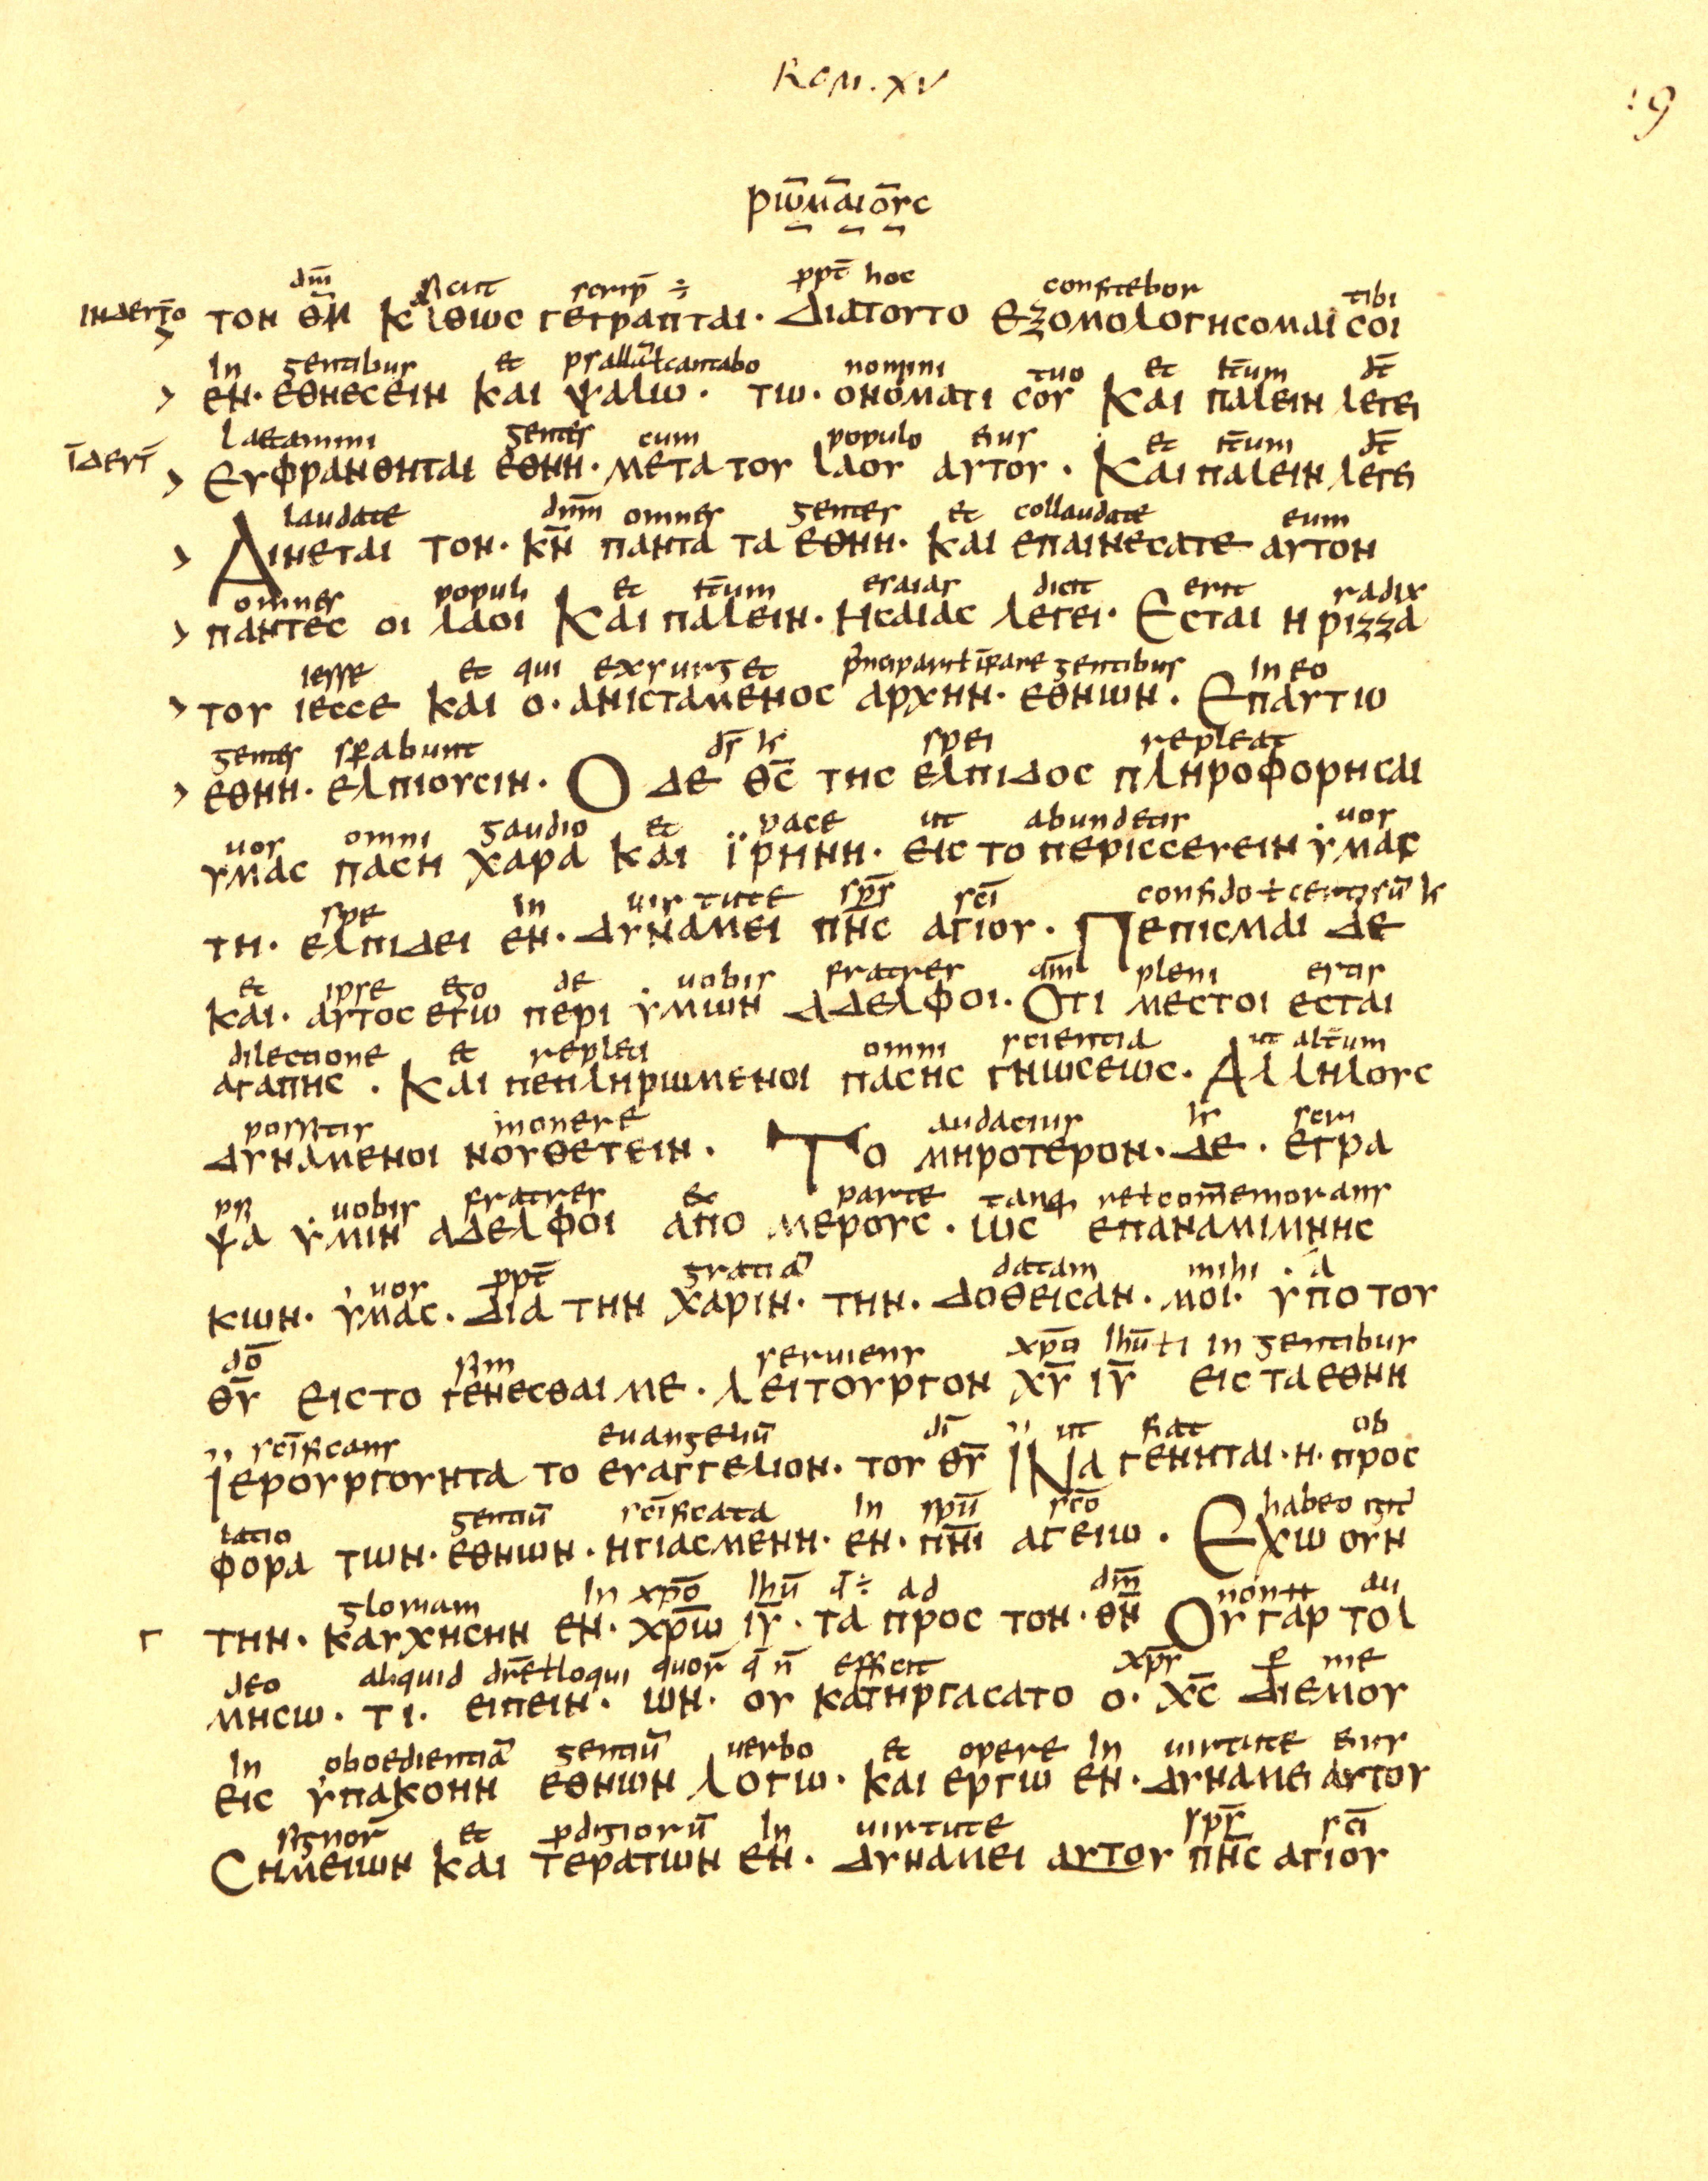 Rom. XV
19
ρω̅μα̅ιο̅υc
dm̅ sicut scrip̅ ÷ ppt̅ hoc confitebor tibi
τον θ̅ν̅ καθωc γεγραπται· Διατουτο εξομολογηcομαι coι
In gentibus et psallā ł cantabo nomini tuo et it̅um dc̅
> εν· εθνεcειν και ψαλω· τω· ονοματι cου Και παλειν λεγει
Laetamini gentes cum populo eius et it̅um dc̅
> Ευφρανθηται εθνη· μετα του λαου αυτου· Και παλειν λεγει
laudate dnm̅ omnes gentes et collaudate eum
> Αινεται τον· κ̅ν̅ παντα τα εθνη· και επαινεcατε αυτον
omnes populi et it̅um esaias dicit erit radix
> παντεc οι λαοι Και παλειν· Ηcαιαc λεγει· Εcται η ριζζα
iesse et qui exsurget gentibus In eo
> του ιεccε και ο· ανιcταμενοc αρχην· εθνων· Επαυτω
gentes sp̱abunt ds̅ spei repleat
> εθνη· ελπιουcιν· Ο δε θ̅c̅ τηc ελπιδοc πληροφορηcαι
uos omni gaudio et pace ut abundetis uos
υμαc παcη χαρα και ϊρηνη· ειc το περιccευειν υμαc
spe In uirtute sps̅ sci̅ confido ł
τη· ελπιδει εν· δυναμει π̅ν̅c̅ αγιου· Πεπιcμαι δε
et ipse ego de uobis fratres pleni estis
και· αυτοc εγω περι υμων αδελφοι· Οτι μεcτοι εcται
dilectione et repleti omni scientia ut alt̅um
αγαπηc· Και πεπληρωμενοι παcηc γνωcεωc· Αλληλουc
possitis monere audacius scri
δυναμενοι νουθετειν· Το μηροτερον· δε· εγρα
psi uobis fratres ex parte tanq̱ re ł com̅emorans
ψα υμιν αδελφοι απο μερουc· ωc επαναμιμνηc
uos ppt̅ gratiā datam mihi a
κων· υμαc· Δια την χαριν· την· δοθειcαν· μοι· υπο του
do̅ sim seruiens xpo̅ Ihu̅ ł ι In gentibus
θ̅υ̅ ειc το γενεcθαι με· λειτουργον χ̅υ̅ ι̅υ̅ ειc τα εθνη
sci̅ficans euangeliū di̅ ut fiat ob
ϊερουργουντα το ευαγγελιον· του θ̅υ̅ ϊΝα γενηται· η· προc
latio gentiū sci̅ficata In spu̅ sco̅ habeo igit̅
φορα των· εθνων· ηγιαcμενη· εν· π̅ν̅ι̅ αγειω· Εχω ουν
gloriam In xpo̅ Ihu̅ q̅÷ ad dm̅ non au
Γ την· καυχηcην εν· χρ̅ω̅ ι̅υ̅· τα προc τον· θ̅ν̅ Ου γαρ τολ
deo aliquid dr̅e ł loqui quor̅ q̅ n̅ efficit xps̅ p̱ me
μηcω· τι· ειπειν· ων· ου κατηργαcατο ο· χ̅c̅ διεμου
In oboedientiā gentiū uerbo et opere In uirtute eius
ειc υπακοην εθνων λογω· και εργω εν· δυναμει αυτου
signor̅ et p̱digiorū In uirtute sps̅ sci̅
Cημειων και τερατων εν· δυναμει αυτου π̅ν̅c̅ αγιου